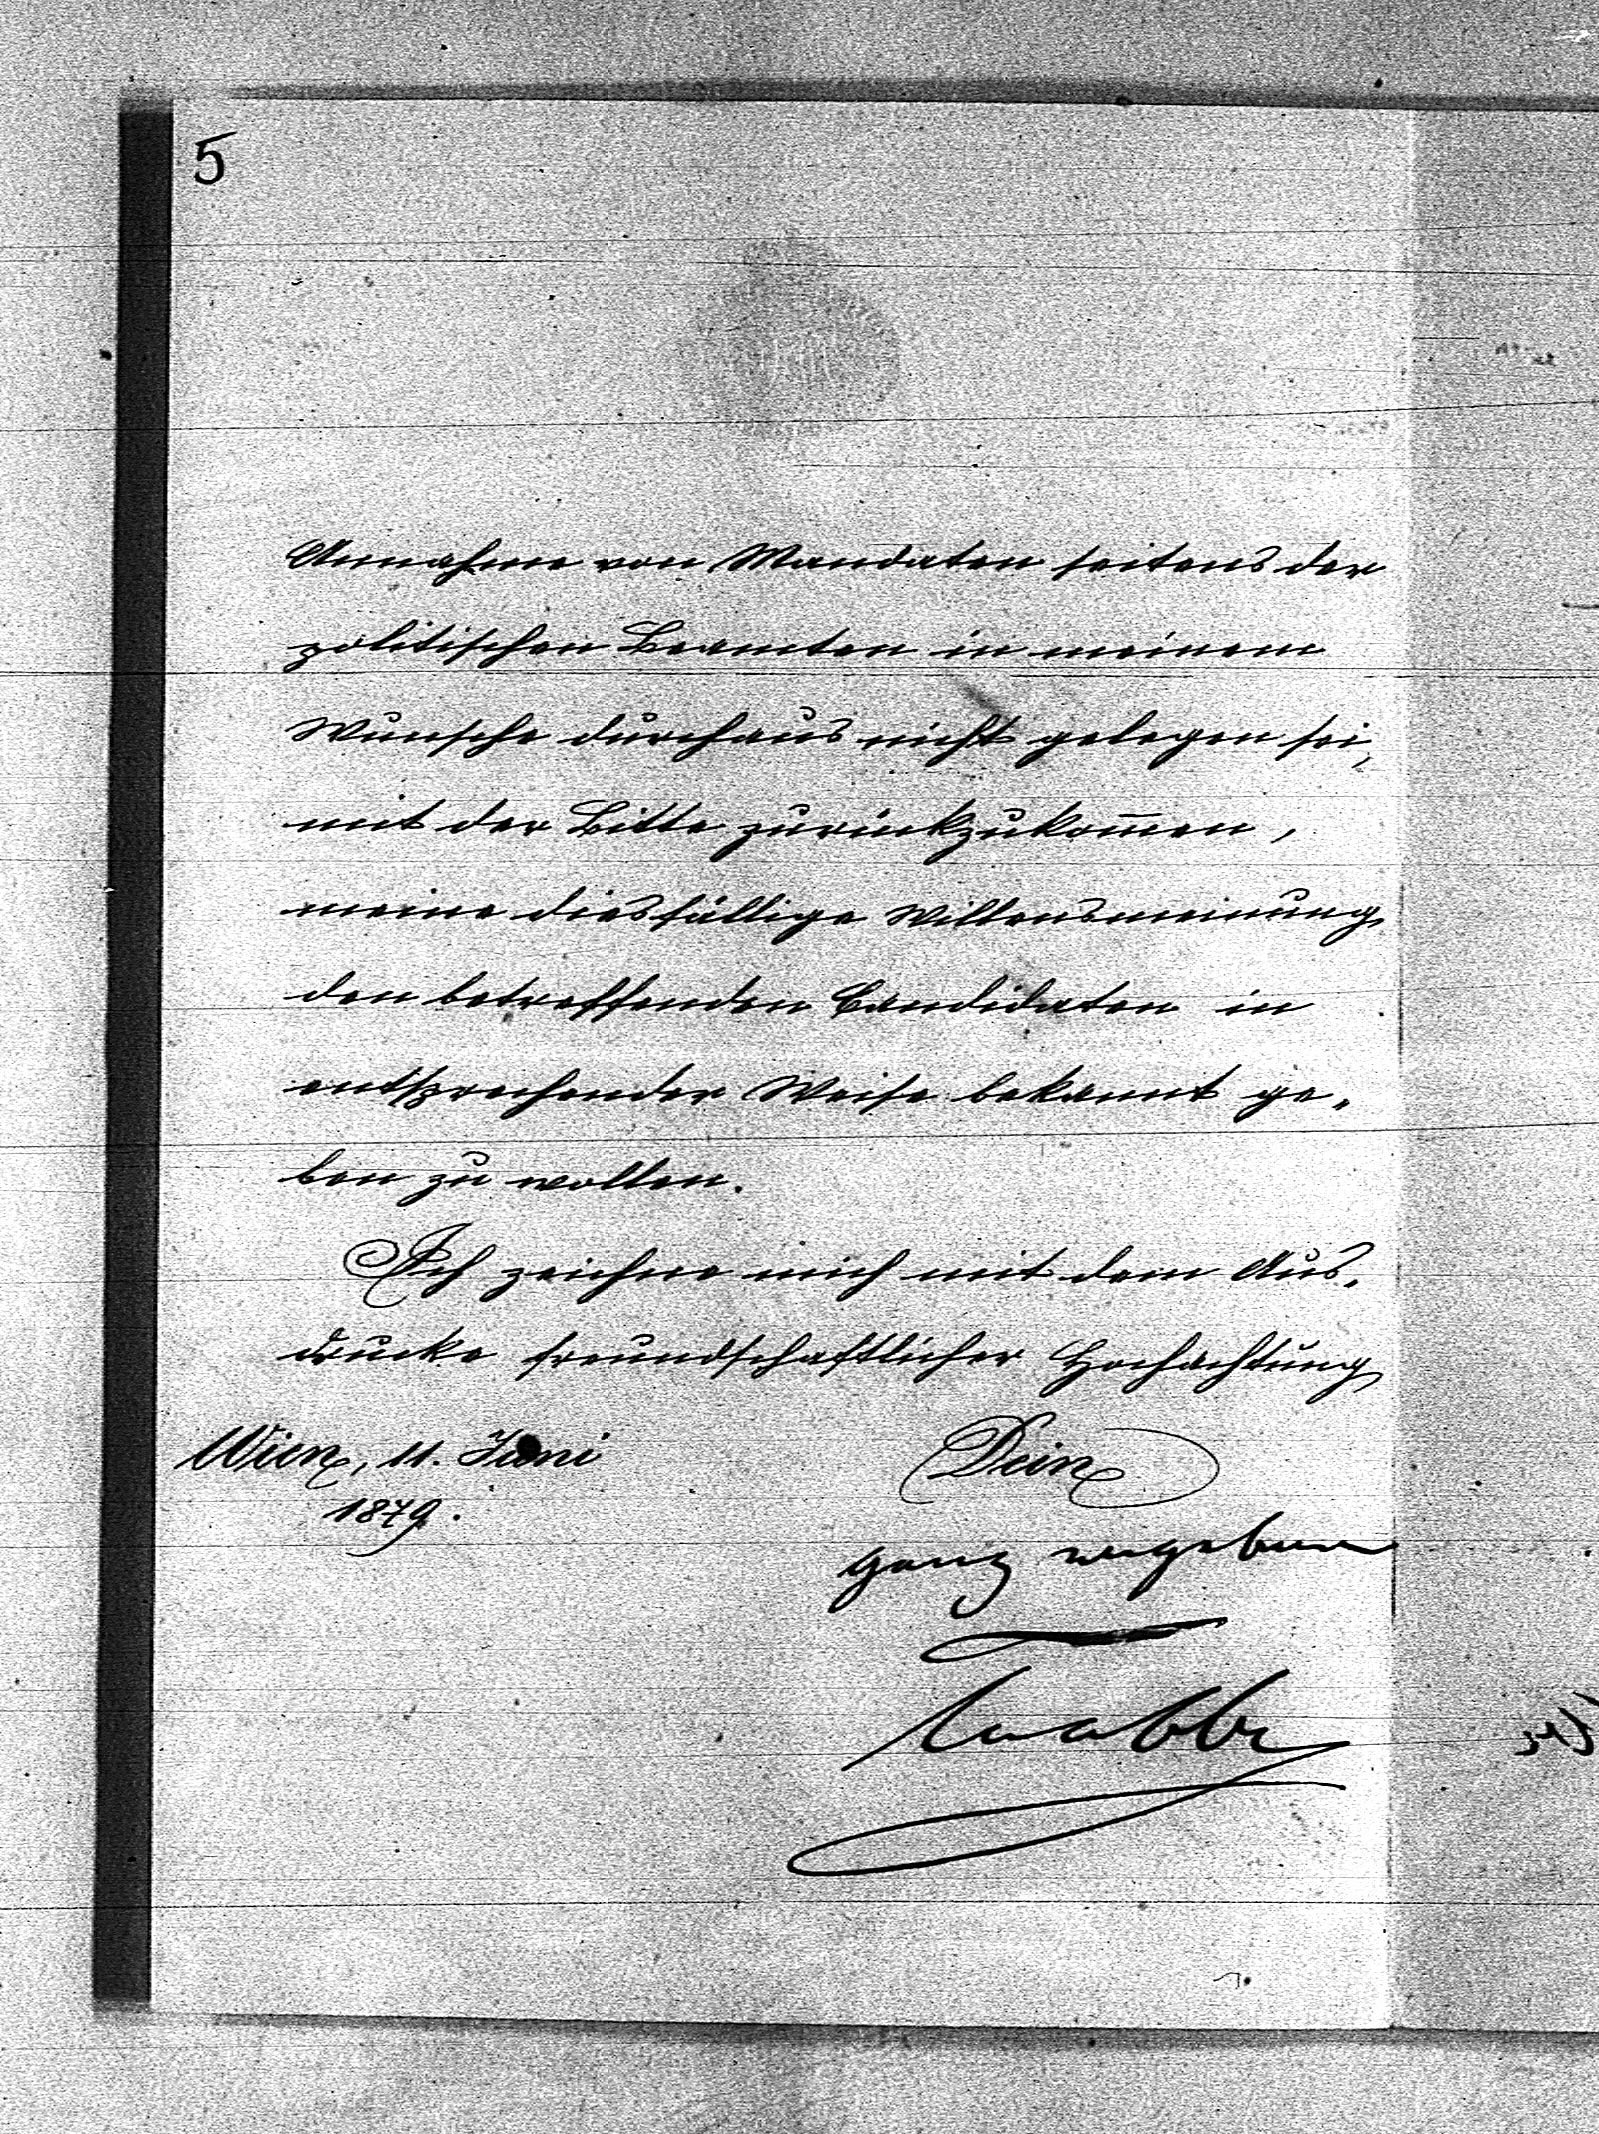 5
Annahme von Mandaten seitens der
politischen Beamten in meinem
Wunsche durchaus nicht gelegen sei,
mit der Bitte zurückzukom̄en,
meine diesfällige Willensmeinung
den betreffenden Candidaten in
entsprechender Weise bekannt ge„
ben zu wollen.
Ich zeichne mich mit dem Aus„
drucke freundschaftlicher Hochachtung
Wien, 11. Juni
1879.
Dein
ganz ergebener
Taaffe